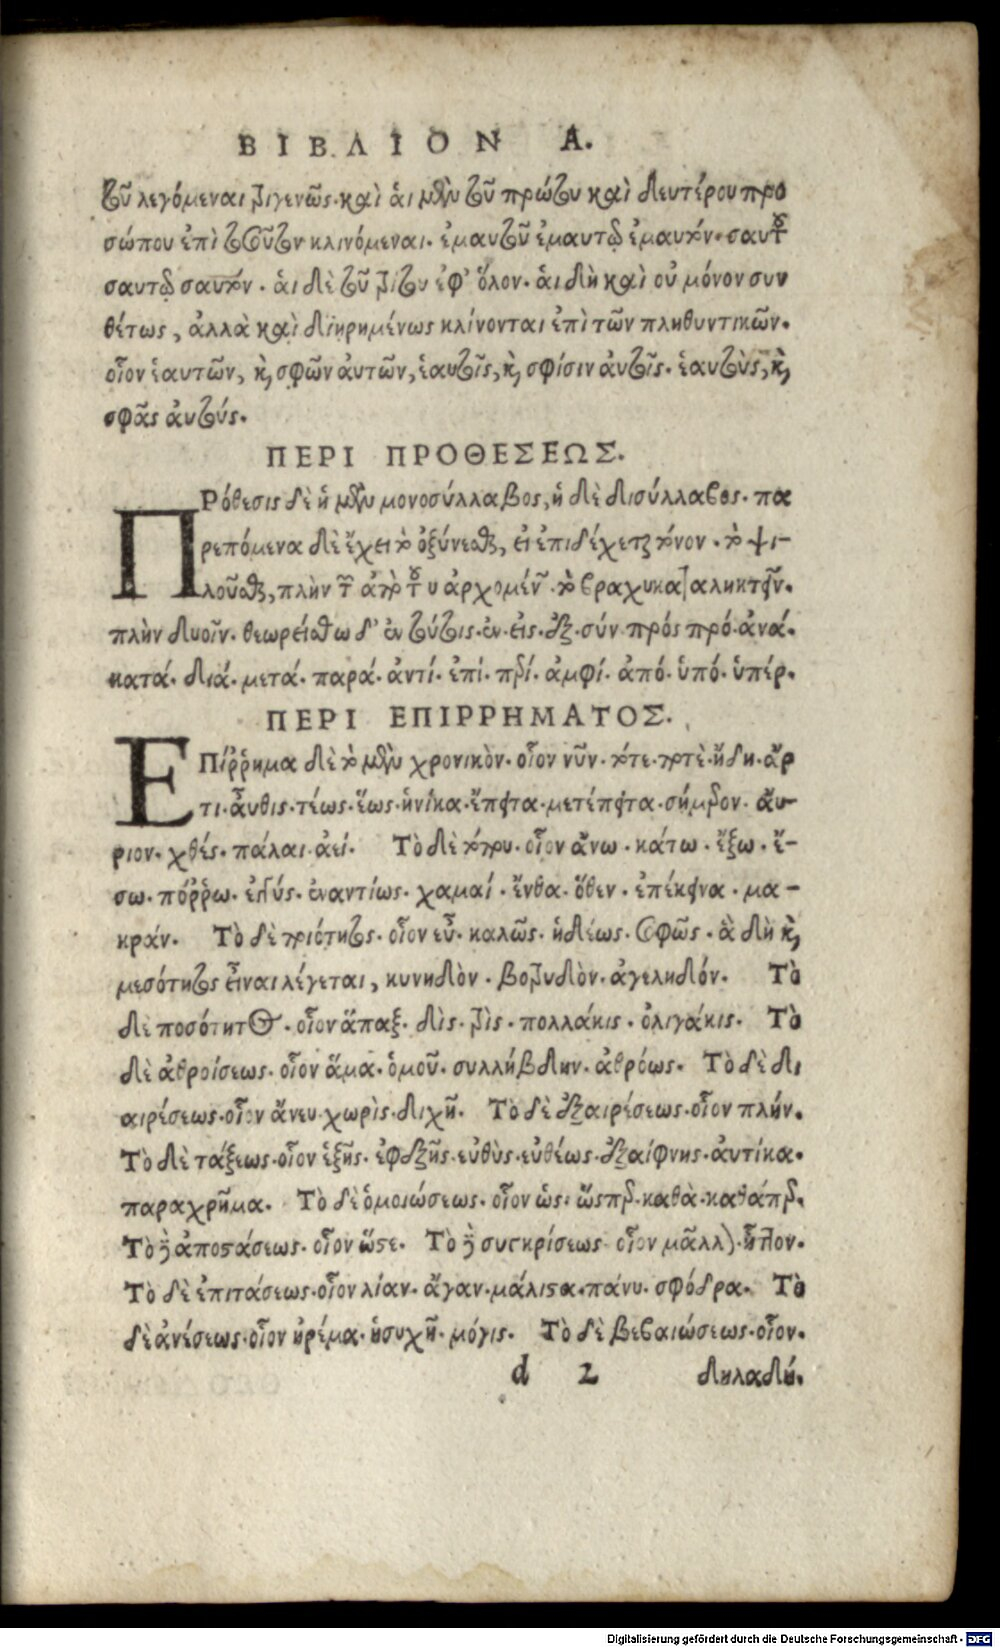 ΒΙΒΛΙΟΝ Α.
τοῦ λεγόμεναι τριγενῶς. καὶ ἁι μὲν τοῦ πρώτου καὶ δευτέρου προ
σώπου ἐπὶ τοσοῦτον κλινόμεναι. ἐμαυτοῦ ἐμαυτῷ ἐμαυτόν. σαυτοῦ
σαυτῷ σαυτόν. ἁι δὲ τοῦ τρίτου ἐφ' ὅλον. ἁι δὴ καὶ οὐ μόνον συν
θέτως, ἀλλὰ καὶ διῃρημένως κλίνονται ἐπὶ τῶν πληθυντικῶν.
οἷον ἑαυτῶν, κὶ σφῶν ἀυτῶν, ἑαυτοῖς, κὶ σφίσιν ἀυτοῖς. ἑαυτοὺς, κὶ
σφᾶς ἀυτούς.
ΠΕΡΙ ΠΡΟΘΕΣΕΩΣ.
ΠΡόθεσις δὲ ἡ μὲν μονοσύλλαβος, ἡ δὲ δισύλλαβος. πα
ρεπόμενα δὲ ἔχει τὸ ὀξύνεσθαι, εἰ ἐπιδέχεται τόνον. τὸ ψι-
λοῦσθαι, πλὴν τῶν ἀπὸ τοῦ υ ἀρχομένων. τὸ βραχυκαταληκτεῖν.
πλὴν δυοῖν. θεωρείσθω δ' ἐν τούτοις. ἐν. εἰς. ἐξ. σύν. πρός. πρό. ἀνά.
κατά. διά. μετά. παρά. ἀντί. ἐπί. περί. ἀμφί. ἀπό. ὑπό. ὑπέρ.
ΠΕΡΙ ΕΠΙΡΡΗΜΑΤΟΣ.
ΕΠίῤῥημα δὲ τὸ μὲν χρονικὸν. οἷον νῦν. τότε. ποτὲ. ἤδη. ἄρ
τι. ἆυθις. τέως. ἕως. ἡνίκα. ἔπειτα. μετέπειτα. σήμερον. ἄυ-
ριον. χθές. πάλαι. ἀεί. Τὸ δὲ τόπου. οἷον ἄνω. κάτω. ἔξω. ἔ-
σω. πόῤῥω. ἐγγύς. ἐναντίως. χαμαί. ἔνθα. ὅθεν. ἐπέκεινα. μα-
κράν. Τὸ δὲ ποιότητος. οἷον εὖ. καλῶς. ἡδέως. σοφῶς. ἃ δὴ κὶ
μεσότητος εἶναι λέγεται, κυνηδὸν. βοτρυδὸν. ἀγεληδόν. Τὸ
δὲ ποσότητος. οἷον ἅπαξ. δὶς. τρὶς. πολλάκις. ὀλιγάκις. Τὸ
δὲ ἀθροίσεως. οἷον ἅμα. ὁμοῦ. συλλήβδην. ἀθρόως. Τὸ δὲ δι
αιρέσεως. οἷον ἄνευ. χωρὶς. διχῆ. Τὸ δὲ ἐξαιρέσεως. οἷον πλήν.
Τὸ δὲ τάξεως. οἷον ἑξῆς. ἐφεξῆς. εὐθὺς. εὐθέως. ἐξαίφνης. ἀυτίκα.
παραχρῆμα. Τὸ δὲ ὁμοιώσεως. οἷον ὡς. ὥσπερ. καθὰ. καθάπερ.
Τὸ δὲ ἀποστάσεως. οἷον ὥστε. Τὸ δὲ συγκρίσεως οἷον μᾶλλον. ἧττον.
Τὸ δὲ ἐπιτάσεως. οἷον λίαν. ἄγαν. μάλιστα. πάνυ. σφόδρα. Τὸ
δὲ ἀνέσεως. οἷον ἠρέμα. ἡσυχῆ. μόγις. Τὸ δὲ βεβαιώσεως. οἷον.
d 2 δηλαδή.
Digitalisierung gefördert durch die Deutsche Forschungsgemeinschaft - DFG